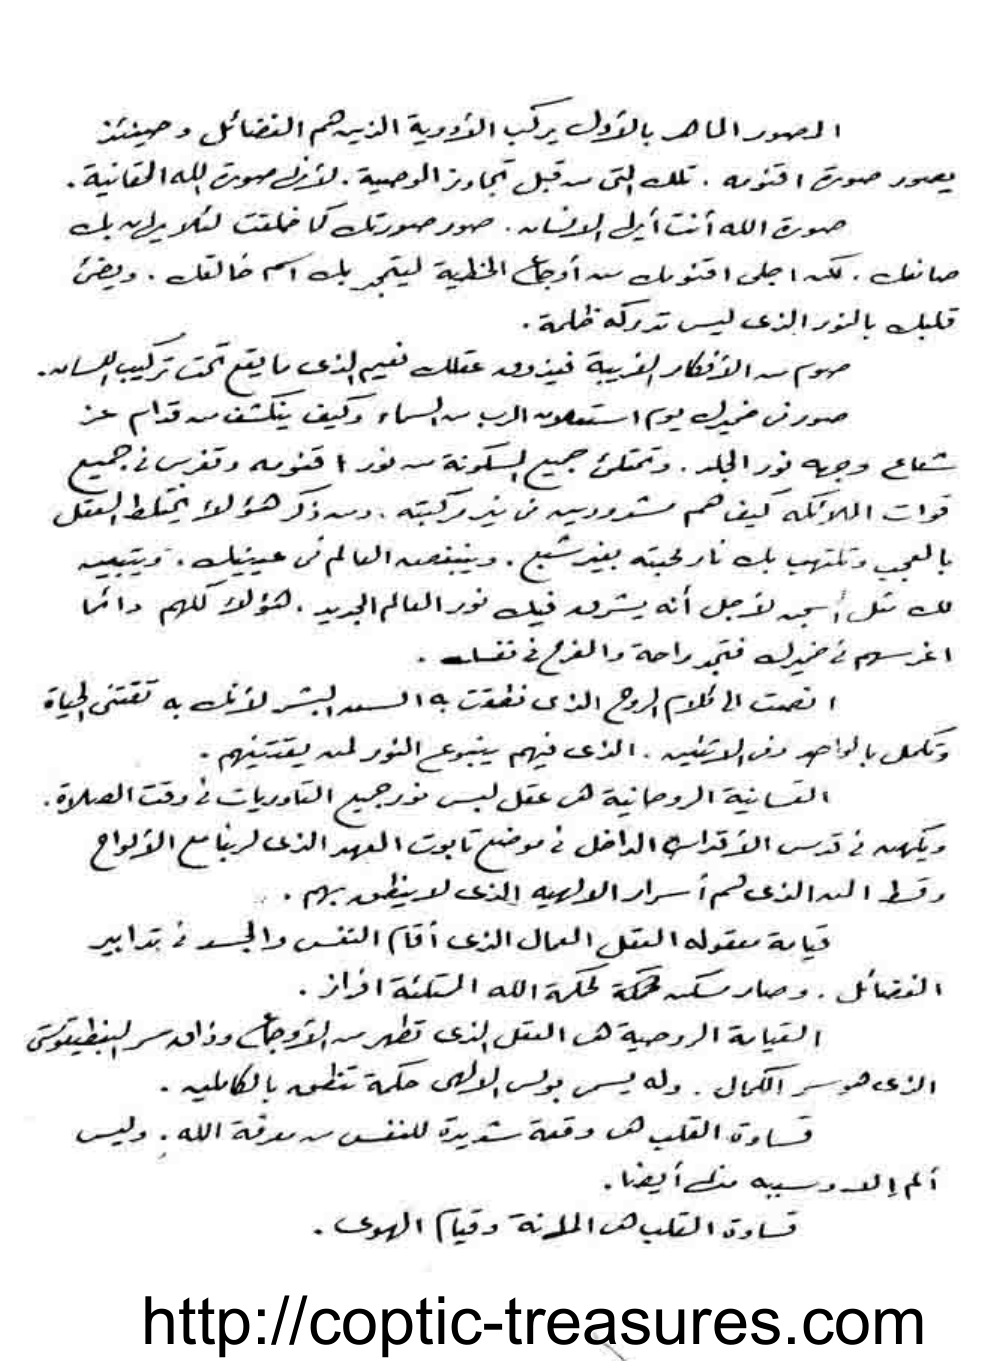 المصور الماهر بالأول يركب الأدوية الذين هم الفضائل وحينئذ
يصور صورة اقنومه . تلك التى من قبل تجاوز الوصية . لأنك صورة الله الحقانية .
صورة الله أنت أيها الإنسان . صور صورتك كما خلقت لئلا بك
صانعك . لكن اجلى اقنومك من أوجاع الخطية ليتمجد بك اسم خالقك . ويضئ
قلبك بالنور الذى ليس تدركه ظلمة .
صوم من الأفكار الغريبة فيذوق عقلك نعيم الذى ما يقع تحت تركيب اللسان .
صور فى ضميرك يوم استعلان الرب من السماء وكيف ينكشف من قدام عز
شعاع وجهه نور الجلد . وتمتلئ جميع المسكونة من نور اقنومه وتفرس فى جميع
قوات الملائكة كيف هم مشدودين فى نير مركبته . ومن ذكر هؤلاء يختلط العقل
بالعجب وتلتهب بك نار محبته بغير شبع . وينبغض العالم فى عينيك . ويتبين
لك مثل سجن لأجل أنه يشرق فيك نور العالم الجديد . هؤلاء كلهم دائما
اغرسهم فى ضميرك فتجد راحة والفرح فى نفسك .
انصت الى كلام الروح الذى نطقت به السن البشر لأنك به تقتنى الحياة
وتكمل بالواحد وفى الاثنين . الذى فيهم ينبوع النور لمن يقتنيهم .
النفسانية الروحانية هى عقل لبس نور جميع التاوريات فى وقت الصلاة .
ويكهن فى قدس الأقداس الداخل فى موضع تابوت العهد الذى لربنا مع الألواح
وقسط المن الذى هم أسرار الالهيه الذى لا ينطق بهم .
قيامة معقوله العقل العمال الذى أقام النفس والجسد فى تدابير
الفضائل . وصار مسكن لحكمة الله الممتلئة افراز .
القيامة الروحية هى العقل الذى تطهر من الأوجاع وذاق سر البنطيقوستى
الذى هو سر الكمال . وله يسمى بولس الإلهى حكمة تنطق بالكاملين .
قساوة القلب هى وقعة شديدة للنفس من معرفة الله . وليس
ألم إلا وسببه منها أيضا .
قساوة القلب هى الملانة وقيام الهوى .
http://coptic-treasures.com